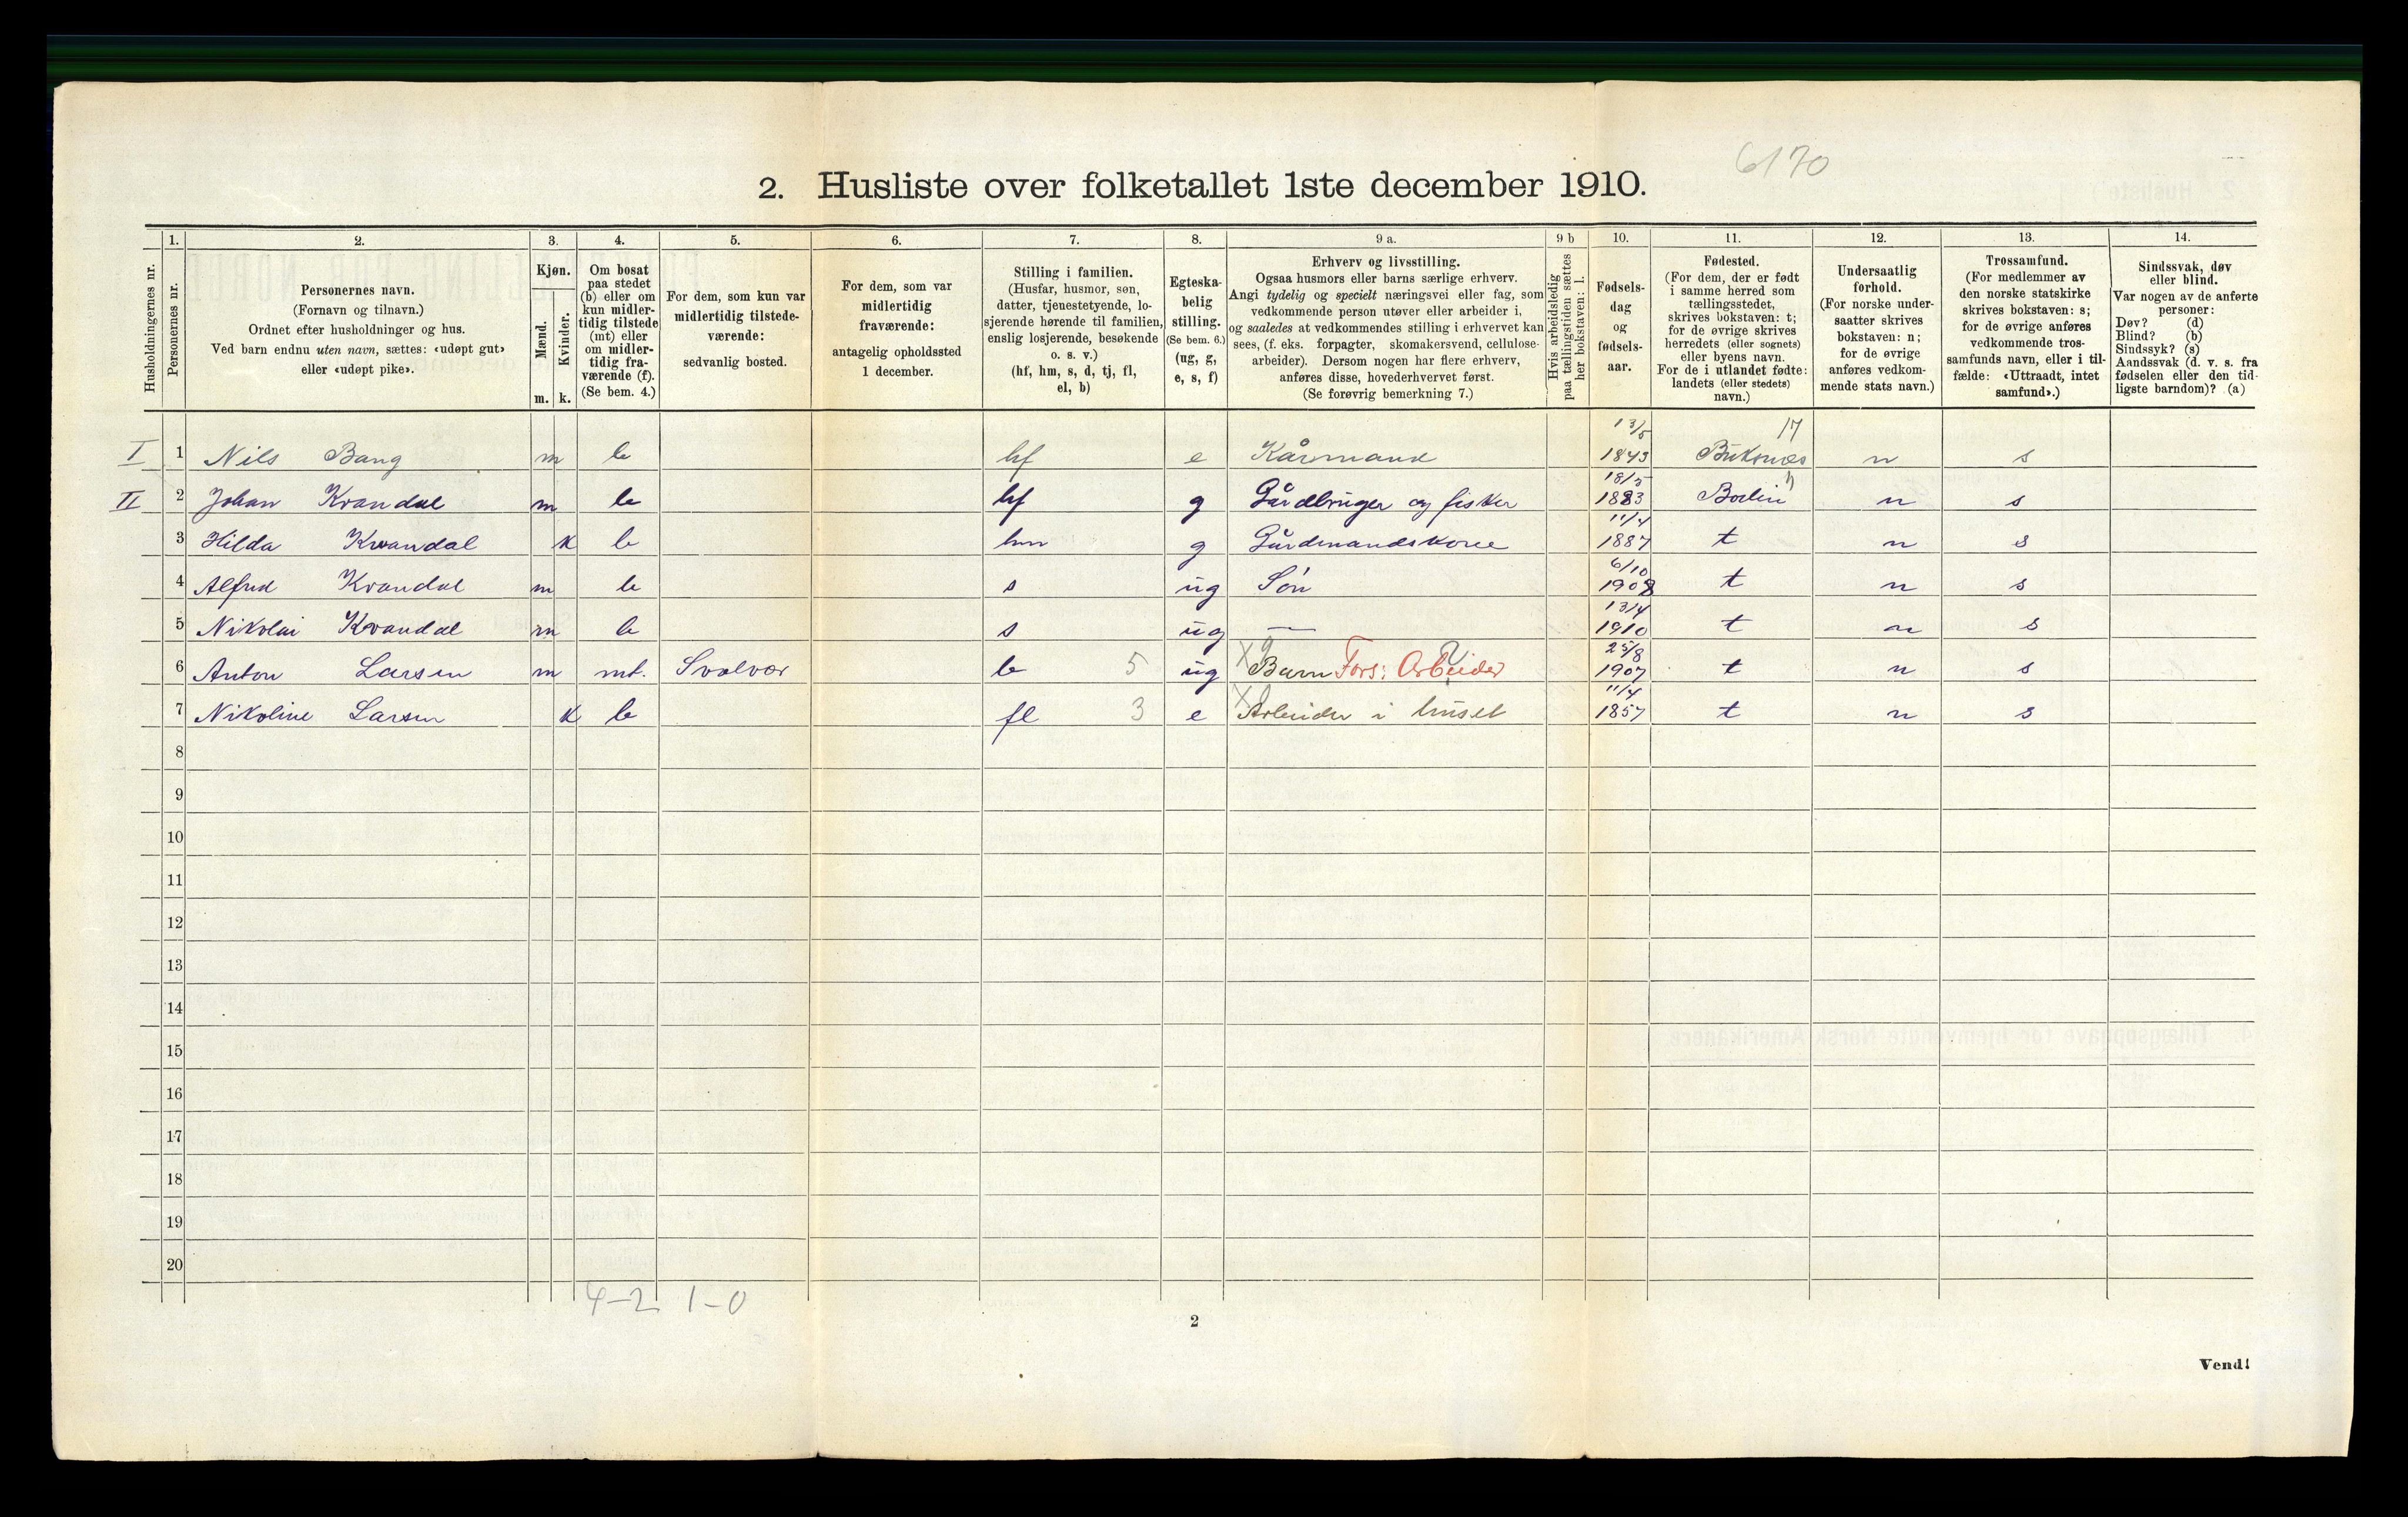 6170
2. Husliste over folketallet 1ste december 1910.
Husholdningernes nr.
1.
Personernes nr.
2.
Personernes navn.
(Fornavn og tilnavn.)
Ordnet efter husholdninger og hus.
Ved barn endnu uten navn, sættes: «udøpt gut»
eller «udøpt pike».
3.
Kjøn.
Mænd.
Kvinder.
m. k.
4.
Om bosat
paa stedet
(b) eller om
kun midler-
tidig tilstede
(mt) eller
om midler-
tidig fra-
værende (f).
(Se bem. 4.)
5.
For dem, som kun var
midlertidig tilstede-
værende:
sedvanlig bosted.
6.
For dem, som var
midlertidig
fraværende:
antagelig opholdssted
1 december.
7.
Stilling i familien.
(Husfar, husmor, søn,
datter, tjenestetyende, lo-
sjerende hørende til familien,
enslig losjerende, besøkende
o. s. v.)
(hf, hm, s, d, tj, fl,
el, b)
8.
Egteska-
belig
stilling.
(Se bem. 6.)
(ug, g,
e, s, f)
9 a.
Erhverv og livsstilling.
Ogsaa husmors eller barns særlige erhverv.
Angi tydelig og specielt næringsvei eller fag, som
vedkommende person utøver eller arbeider i,
og saaledes at vedkommendes stilling i erhvervet kan
sees, (f. eks. forpagter, skomakersvend, cellulose-
arbeider). Dersom nogen har flere erhverv,
anføres disse, hovederhvervet først.
(Se forøvrig bemerkning 7.)
9 b
Hvis arbeidsledig
paa tællingstiden sættes
her bokstaven: l.
10.
Fødsels-
dag
og
fødsels-
aar.
11.
Fødested.
(For dem, der er født
i samme herred som
tællingsstedet,
skrives bokstaven: t;
for de øvrige skrives
herredets (eller sognets)
eller byens navn.
For de i utlandet fødte:
landets (eller stedets)
navn.)
12.
Undersaatlig
forhold.
(For norske under-
saatter skrives
bokstaven: n;
for de øvrige
anføres vedkom-
mende stats navn.)
13.
Trossamfund.
(For medlemmer av
den norske statskirke
skrives bokstaven: s;
for de øvrige anføres
vedkommende tros-
samfunds navn, eller i til-
fælde: «Uttraadt, intet
samfund».)
14.
Sindssvak, døv
eller blind.
Var nogen av de anførte
personer:
Døv? (d)
Blind? (b)
Sindssyk? (s)
Aandssvak (d. v. s. fra
fødselen eller den tid-
ligste barndom)? (a)
13/5 17
I 1 Nils Bang m b hf e Kårmand 1843 Buksnes n s
18/5
II 2 Johan Kvandal m b hf g Gårdbruger og fisker 1883 Bodin n s
11/4
3 Hilda Kvandal k b hm g Gårdmandskone 1887 t n s
6/10
4 Alfred Kvandal m b s ug Søn 1908 t n s
13/4
5 Nikolai Kvandal m b s ug — 1910 t n s
25/8
6 Anton Larsen m mt. Svolvær b 5 ug Barn Fors: Arbeider 1907 t n s
11/4
7 Nikoline Larsen k b fl 3 e Arbeider i huset 1857 t n s
8
9
10
11
12
13
14
15
16
17
18
19
20
4–2 1–0
2
Vend!